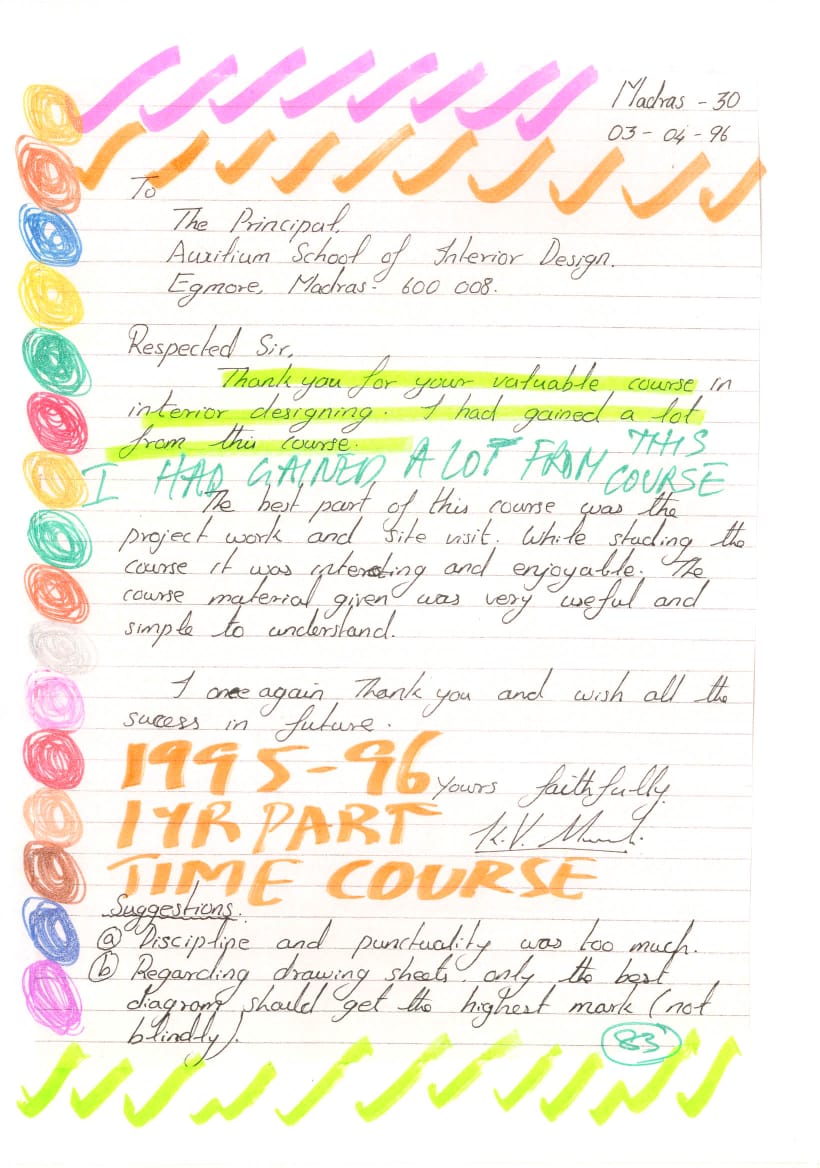 Madras - 30
03 - 04 - 96
To
The Principal,
Auxilium School of Interior Design.
Egmore, Madras - 600 008.
Respected Sir,
Thank you for your valuable course in
interior designing. I had gained a lot
from this course.
I HAD GAINED A LOT FROM THIS COURSE
The best part of this course was the
project work and site visit. While studing the
course it was interesting and enjoyable. The
course material given was very useful and
simple to understand.
I once again Thank you and wish all the
success in future.
1995-96
Yours faithfully,
1 YR PART
K.V.
TIME COURSE
Suggestions.
(a) Discipline and punctuality was too much.
(b) Regarding drawing sheets, only the best
diagram should get the highest mark (not
blindly).
83